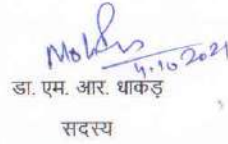 4.10.2021
डा. एम. आर. धाकड़
सदस्य